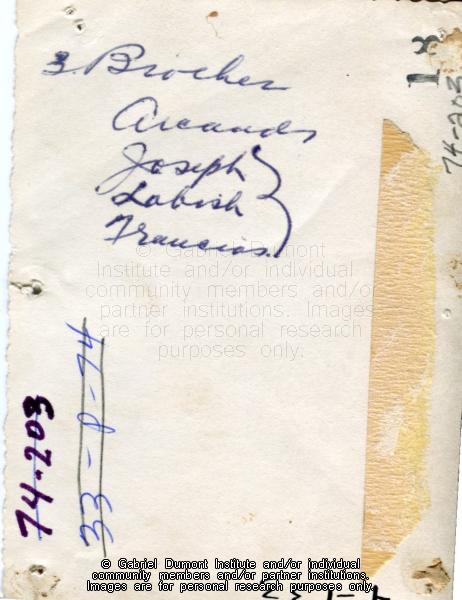 3. Brother
Arcands
Joseph
Labish
Francios
© Gabriel Dumont
Institute and/or individual
community members and/or
partner institutions. Images
are for personal research
purposes only.
74-203
33-8-74
18
74-203
© Gabriel Dumont Institute and/or individual
community members and/or partner institutions.
Images are for personal research purposes only.